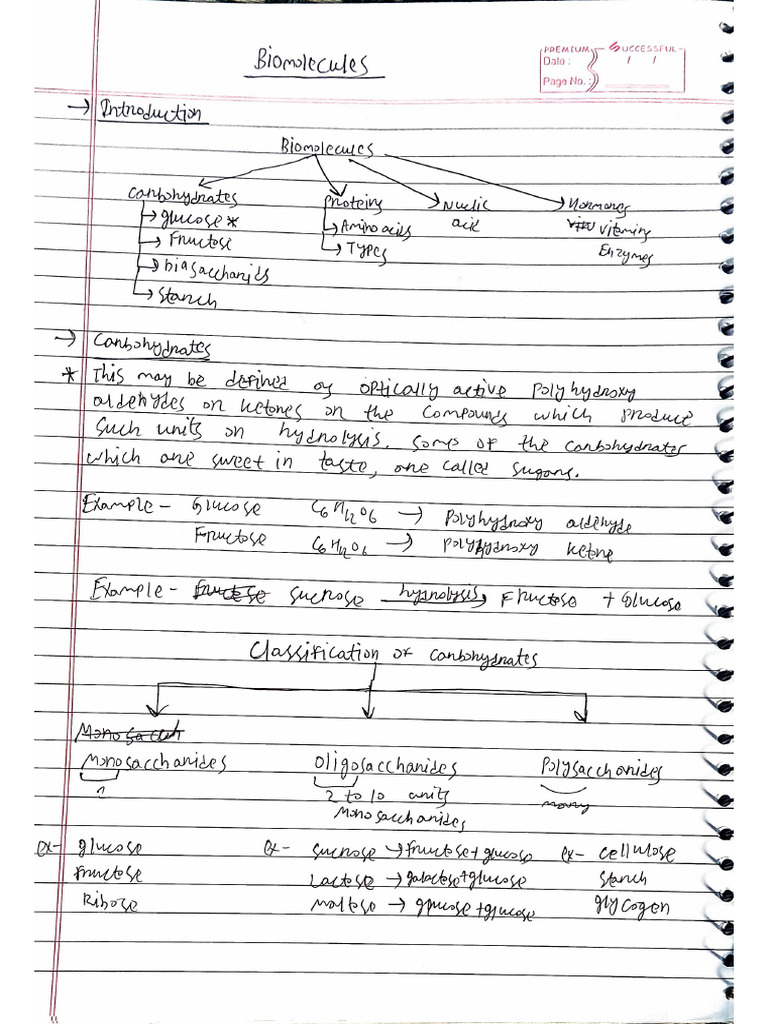 Biomolecules
PREMIUM SUCCESSFUL
Date : / /
Page No. :
→ Introduction
Biomolecules
Carbohydrates Proteins Nuclic Hormones
→ glucose * → Amino acids acid vitamins
→ Fructose → Types Enzymes
→ biasaccharids
→ Starch
→ Carbohydrates
* This may be defined as optically active polyhydroxy
aldehydes or ketones or the compounds which produce
such units on hydrolysis. Some of the carbohydrates
which are sweet in taste, are called sugars.
Example - Glucose C6H12O6 → Polyhydroxy aldehyde
Fructose C6H12O6 → Polyhydroxy ketone
Example - Fructose sucrose hydrolysis→ Fructose + Glucose
Classification of carbohydrates
Monosacch
Monosaccharides Oligosaccharides Polysaccharides
1 2 to 10 units many
Monosaccharides
ex- glucose ex- sucrose → fructose + glucose ex- cellulose
Fructose Lactose → galactose + glucose starch
Ribose Maltose → glucose + glucose glycogen